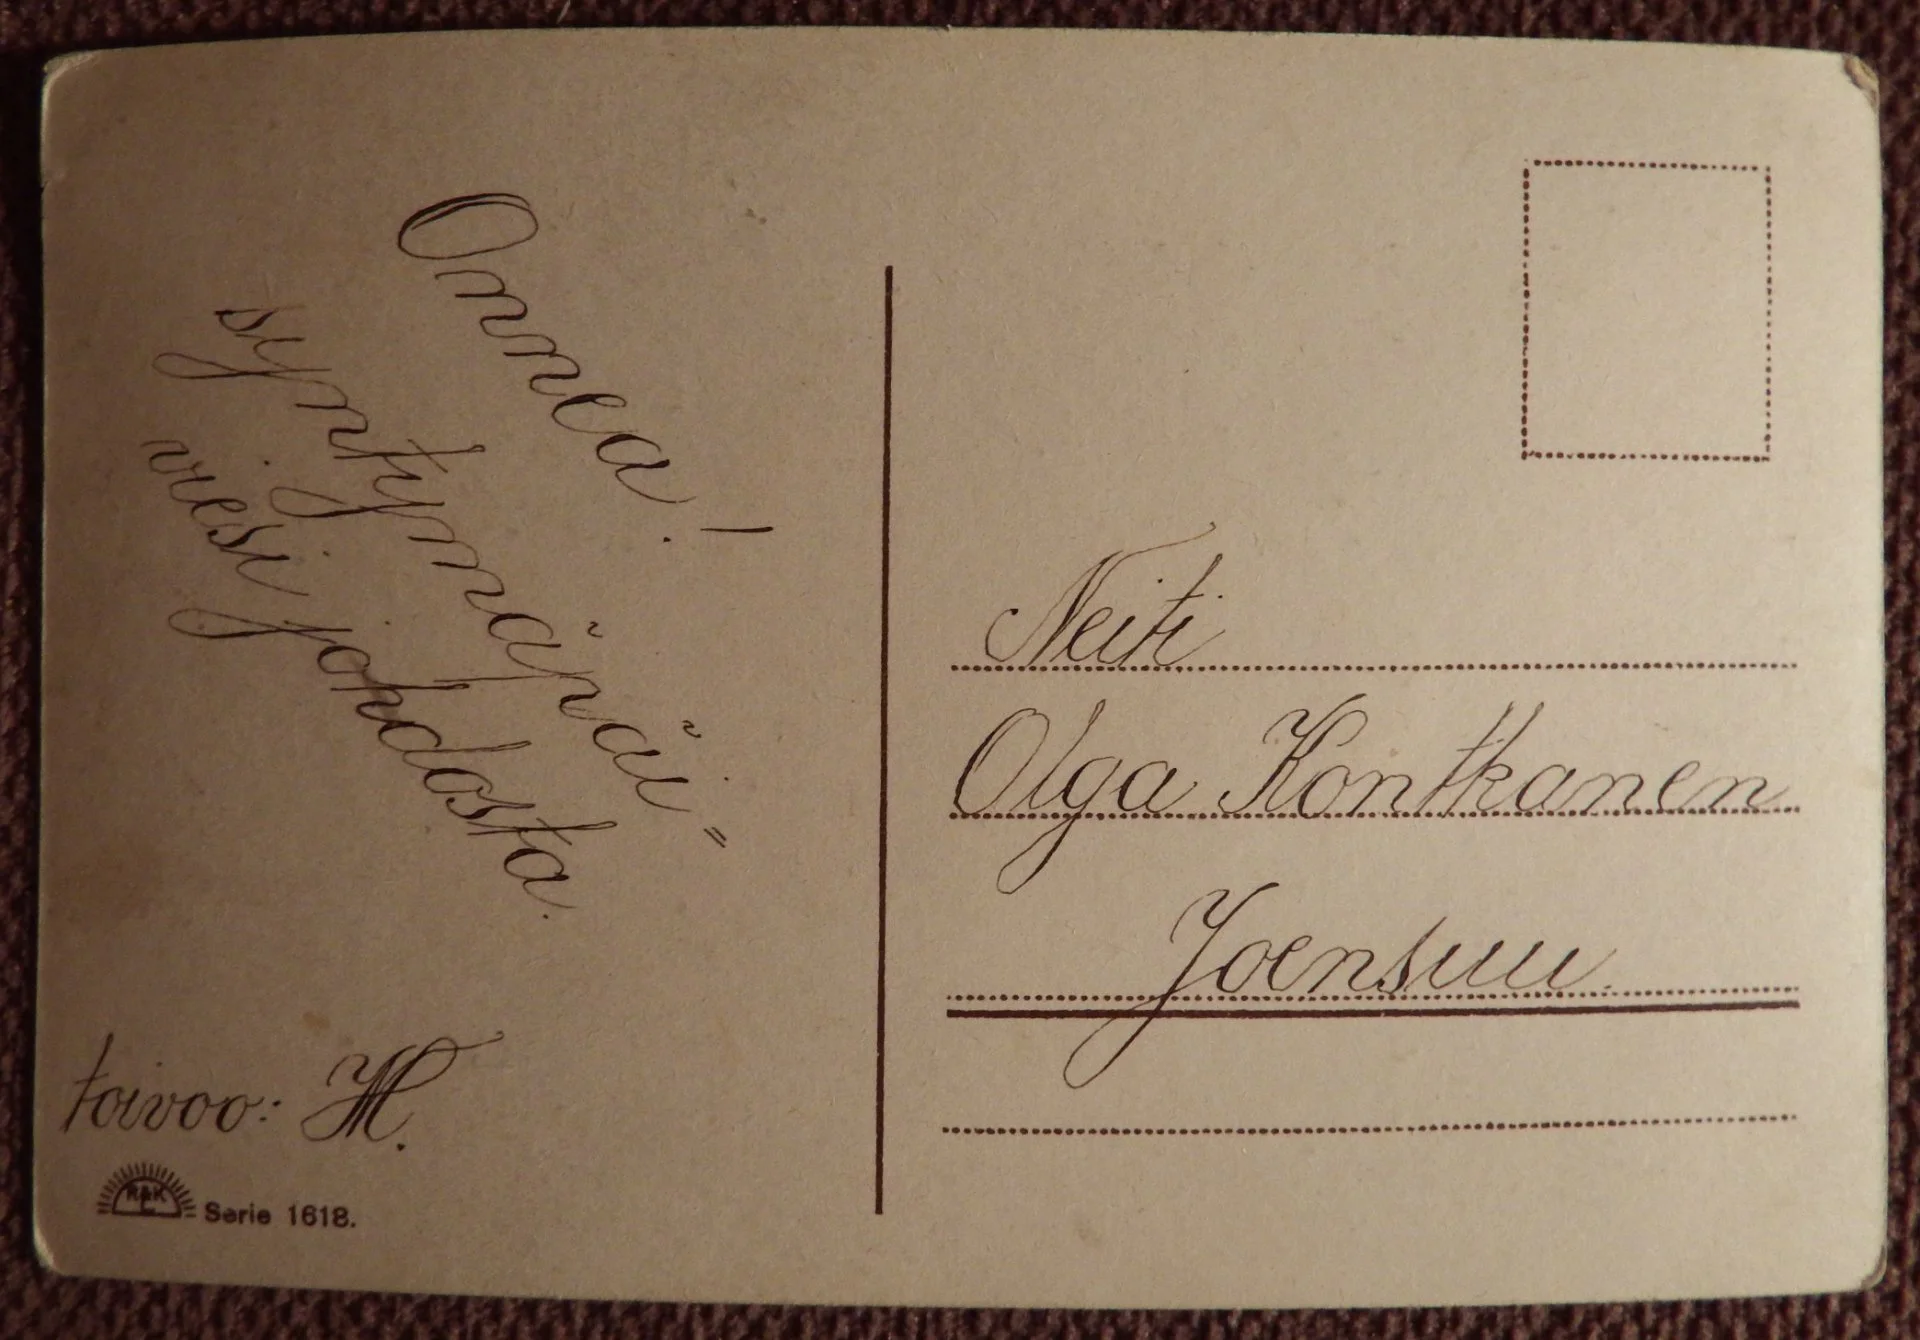 Onnea!
syntymäpäi=
väsi johdosta.
toivoo: H.
R&K
L
Serie 1618.
Neiti
Olga Kontkanen
Joensuu.